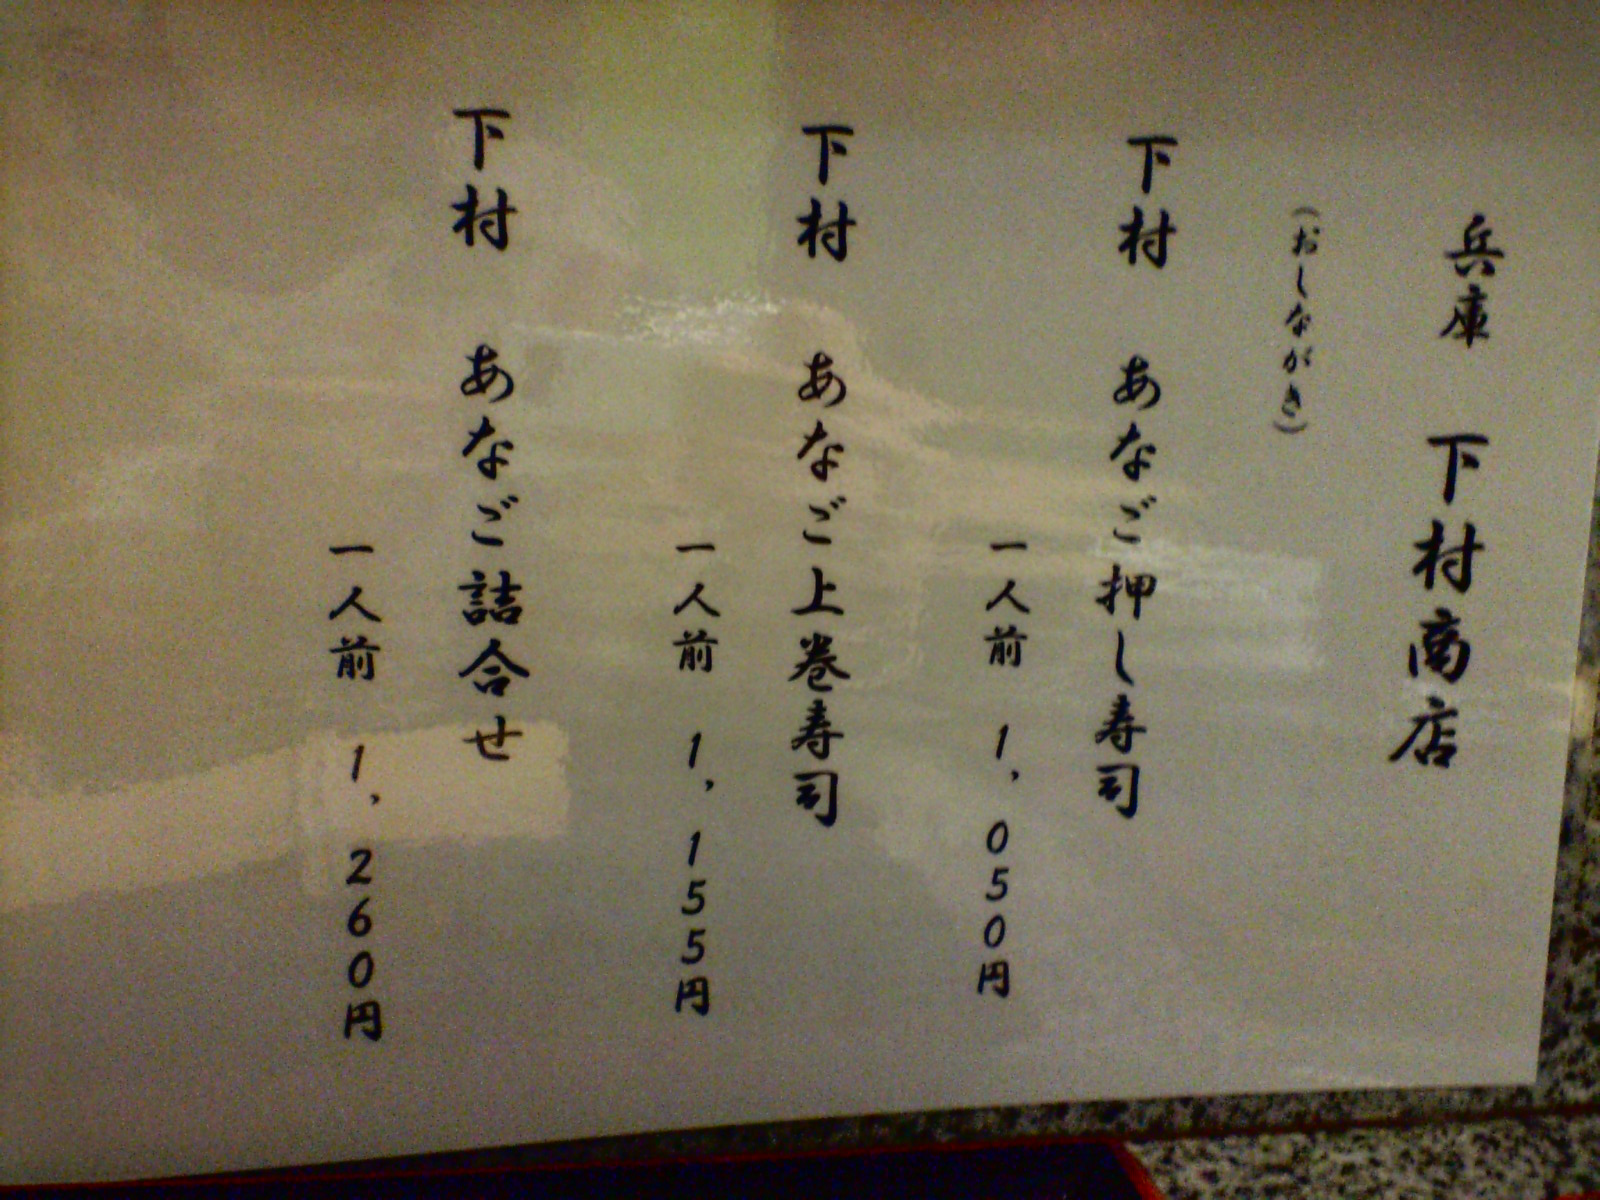 兵庫 下村商店
(おしながき)
下村 あなご押し寿司
一人前 1,050円
下村 あなご上巻寿司
一人前 1,155円
下村 あなご詰合せ
一人前 1,260円